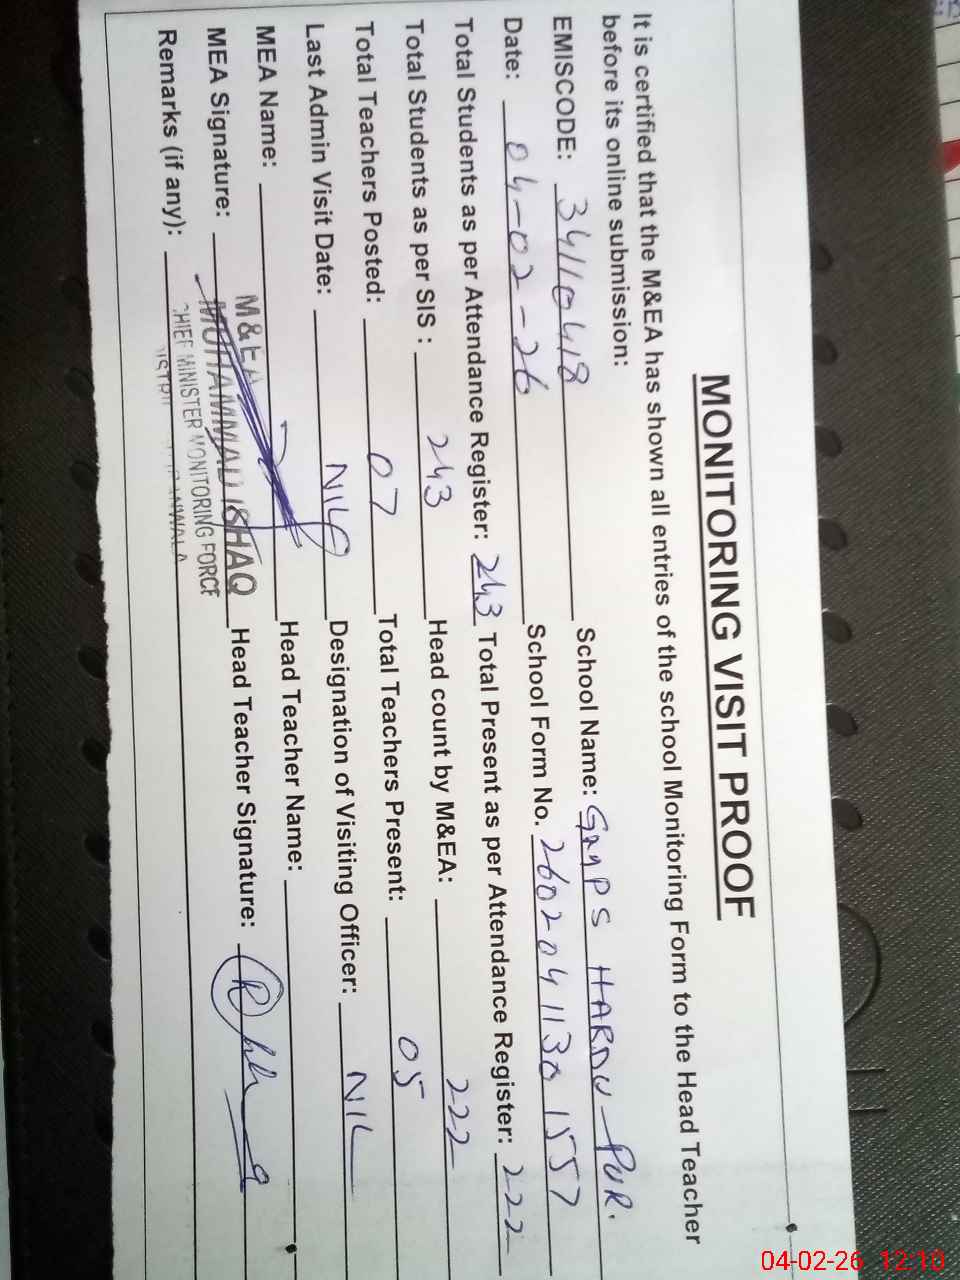 MONITORING VISIT PROOF
It is certified that the M&EA has shown all entries of the school Monitoring Form to the Head Teacher
before its online submission:
EMISCODE: 34110418 School Name: GMPS HARDU-PUR.
Date: 04-02-26 School Form No. 2602041130157
Total Students as per Attendance Register: 243 Total Present as per Attendance Register: 222
Total Students as per SIS : 243 Head count by M&EA: 222
Total Teachers Posted: 07 Total Teachers Present: 05
Last Admin Visit Date: NIL Designation of Visiting Officer: NIL
MEA Name: Head Teacher Name:
MEA Signature: Head Teacher Signature:
Remarks (if any):
M&EA
MUHAMMAD ISHAQ
CHIEF MINISTER MONITORING FORCE
04-02-26 12:10